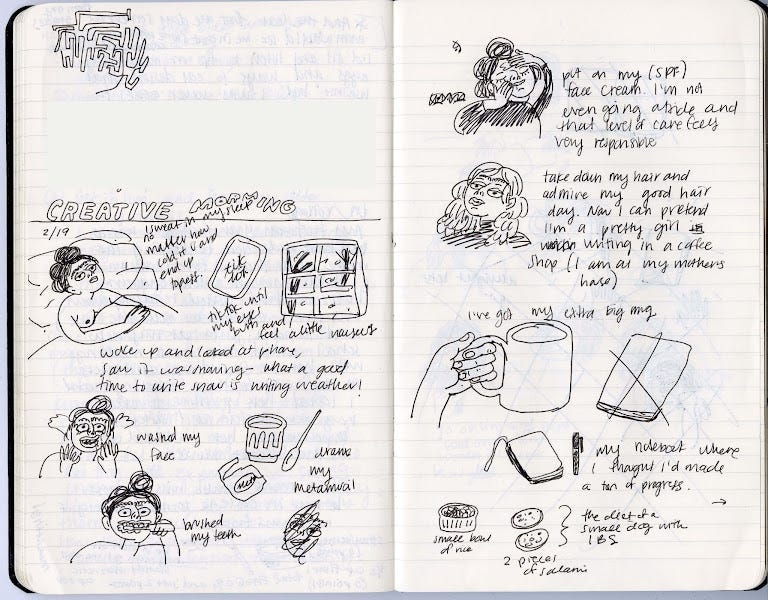 CREATIVE MORNING
2/19
I sweat in my sleep
no
matter how
cold it is and
end up
topless.
tik
tok
tiktok until
my eyes
burn and I
feel a little nauseous
woke up and looked at phone,
saw it was snowing - what a good
time to write snow is writing weather!
washed my
face
drank
my
metamucil
meta
brushed
my teeth
put on my (SPF)
face cream. I'm not
even going outside and
that level of care feels
very responsible
take down my hair and
admire my good hair
day. Now I can pretend
I'm a pretty girl
writing in a coffee
shop (I am at my mothers
house)
I've got my extra big mug
my notebook where
I thought I'd made
a ton of progress.
→
small bowl
of rice
2 pieces
of salami
the diet of a
small dog with
IBS